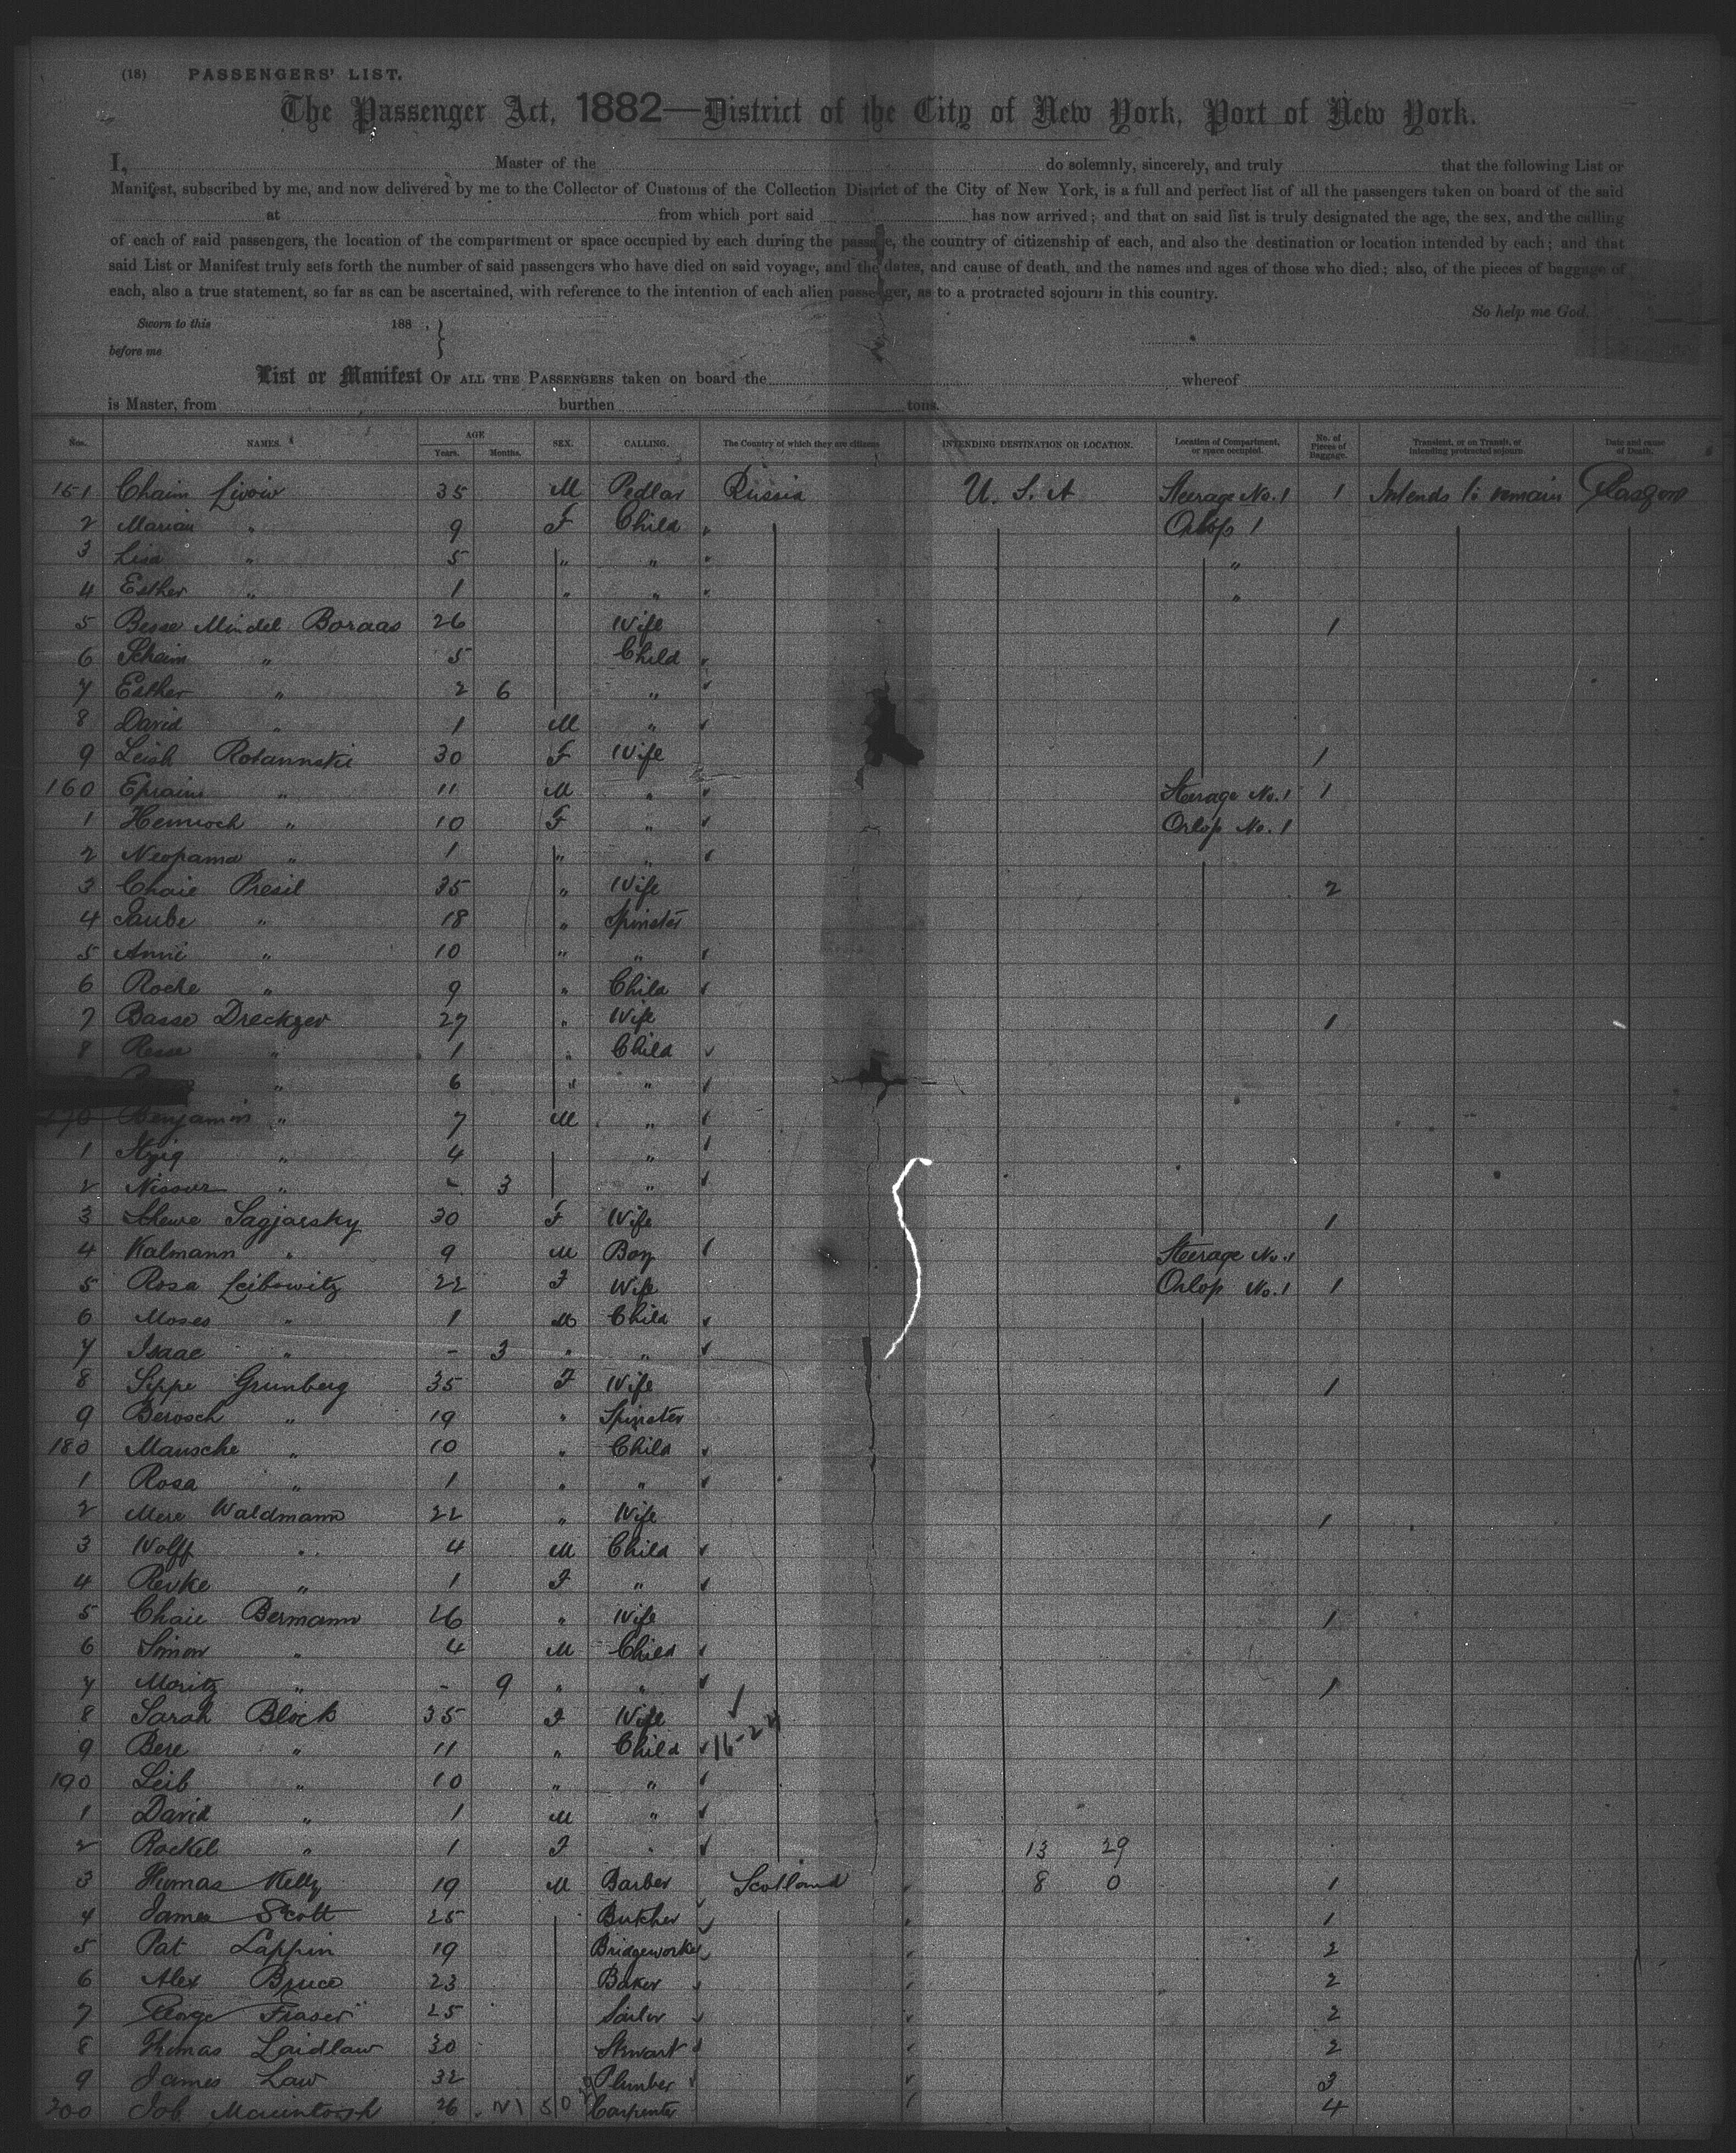 (18) PASSENGERS' LIST.
The Passenger Act, 1882—District of the City of New York, Port of New York.
I, Master of the do solemnly, sincerely, and truly that the following List or
Manifest, subscribed by me, and now delivered by me to the Collector of Customs of the Collection District of the City of New York, is a full and perfect list of all the passengers taken on board of the said
at from which port said has now arrived; and that on said list is truly designated the age, the sex, and the calling
of each of said passengers, the location of the compartment or space occupied by each during the passage, the country of citizenship of each, and also the destination or location intended by each; and that
said List or Manifest truly sets forth the number of said passengers who have died on said voyage, and the dates, and cause of death, and the names and ages of those who died; also, of the pieces of baggage of
each, also a true statement, so far as can be ascertained, with reference to the intention of each alien passenger, as to a protracted sojourn in this country.
So help me God.
Sworn to this 188 . }
before me
List or Manifest OF ALL THE PASSENGERS taken on board the whereof
is Master, from burthen tons.
Nos. NAMES. AGE Years. Months. SEX. CALLING. The Country of which they are citizens INTENDING DESTINATION OR LOCATION. Location of Compartment, or space occupied. No. of Pieces of Baggage. Transient, or on Transit, or intending protracted sojourn. Date and cause of Death.
151 Chaim Livow 35 M Pedlar Russia U. S. A Steerage No. 1 1 Intends to remain Glasgow
2 Marian " 9 F Child " Orlop 1
3 Lisa " 5 " " " "
4 Esther " 1 " " " "
5 Besse Mindel Boraas 26 Wife 1
6 Scheim " 5 Child "
7 Esther " 2 6 "
8 David " 1 M "
9 Leish Rotannskie 30 F Wife 1
160 Epraim " 11 M " Steerage No. 1 1
1 Hennoch " 10 F " Orlop No. 1
2 Neopama " 1 " "
3 Chaie Presil 35 " Wife 2
4 Taube " 18 " Spinster
5 Annie " 10 " "
6 Roche " 9 " Child
7 Basse Dreckzer 27 " Wife 1
8 Resse " 1 " Child
" 6 " "
170 Benjamin " 7 M "
1 " 4 "
2 Nissur " - 3 "
3 Schewe Sagjarsky 30 F Wife 1
4 Kalmann " 9 M Boy Steerage No. 1
5 Rosa Leibowitz 22 F Wife Orlop No. 1 1
6 Moses " 1 M Child
7 Isaac " - 3 " "
8 Sippe Grunberg 35 F Wife 1
9 Berosch " 19 " Spinster
180 Mausche " 10 " Child
1 Rosa " 1 " "
2 Mere Waldmann 22 " Wife 1
3 Wolff " 4 M Child
4 Revke " 1 F "
5 Chaie Bermann 26 " Wife 1
6 Simon " 4 M Child
7 Moritz " - 9 " " 1
8 Sarah Block 35 F Wife
9 Bere " 11 " Child 16-2
190 Leib " 10 " "
1 David " 1 M "
2 Rockel " 1 F " 13 29
3 Thomas Kelly 19 M Barber Scotland 8 0 1
4 James Scott 25 Butcher 1
5 Pat Lappin 19 Bridgeworker 2
6 Alex Bruce 23 Baker 2
7 George Fraser 25 Sailor 2
8 Thomas Laidlaw 30 Stewart 2
9 James Law 32 Plumber 3
200 Job Macintosh 26 Carpenter 4